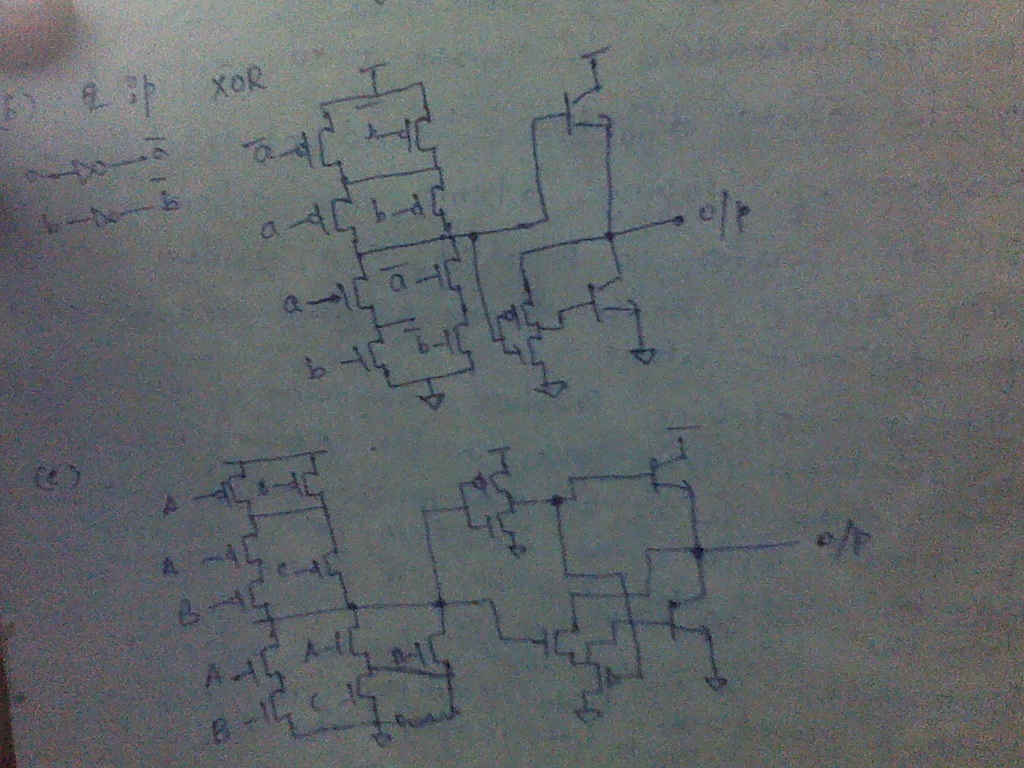 (b) 2 i/p XOR
a ā
b b̄
ā
a b
a ā
b b̄
o/p
(c)
A B
A C
B
A A B
B C
o/p